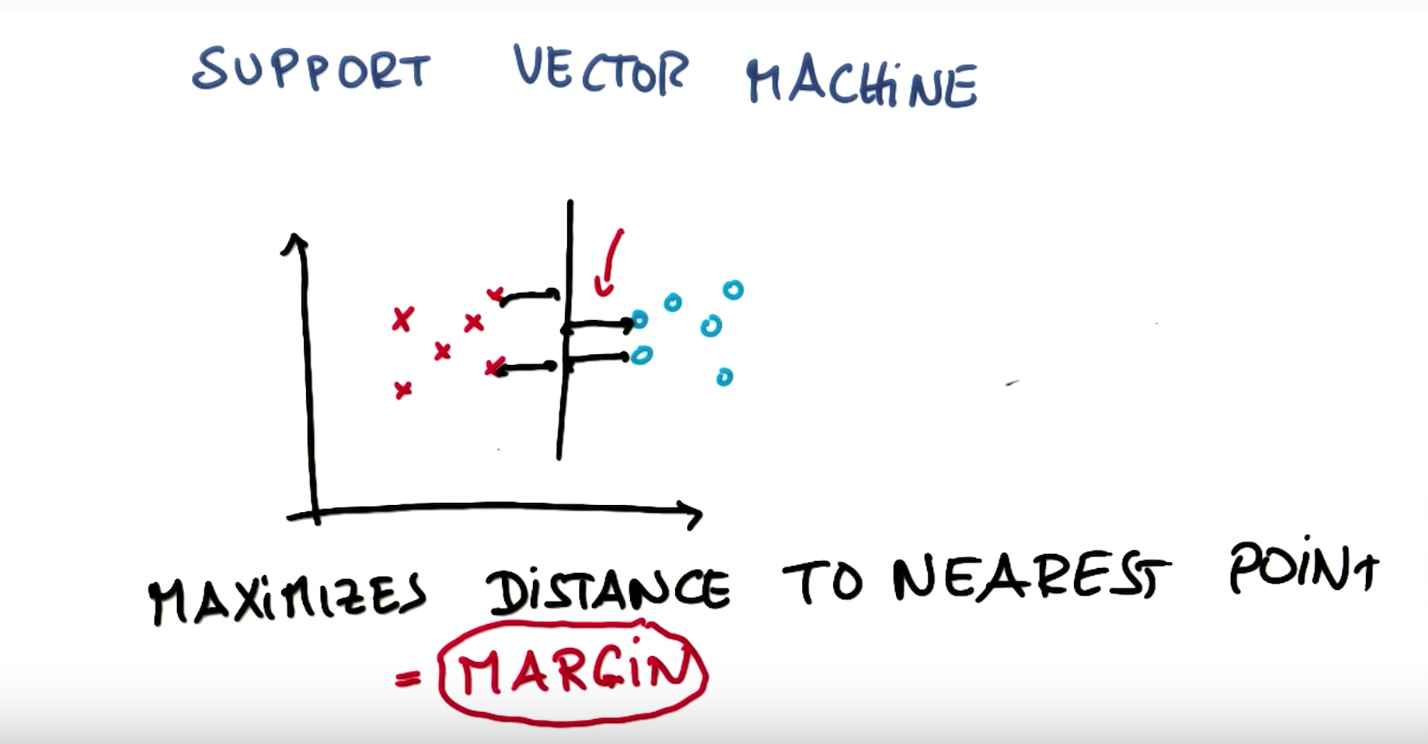 SUPPORT VECTOR MACHINE
MAXiMIZES DiSTANCE TO NEAREST POiNt
= MARGiN